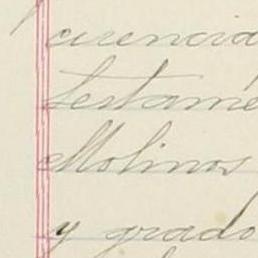 curencia
testame
Molinos
y grado